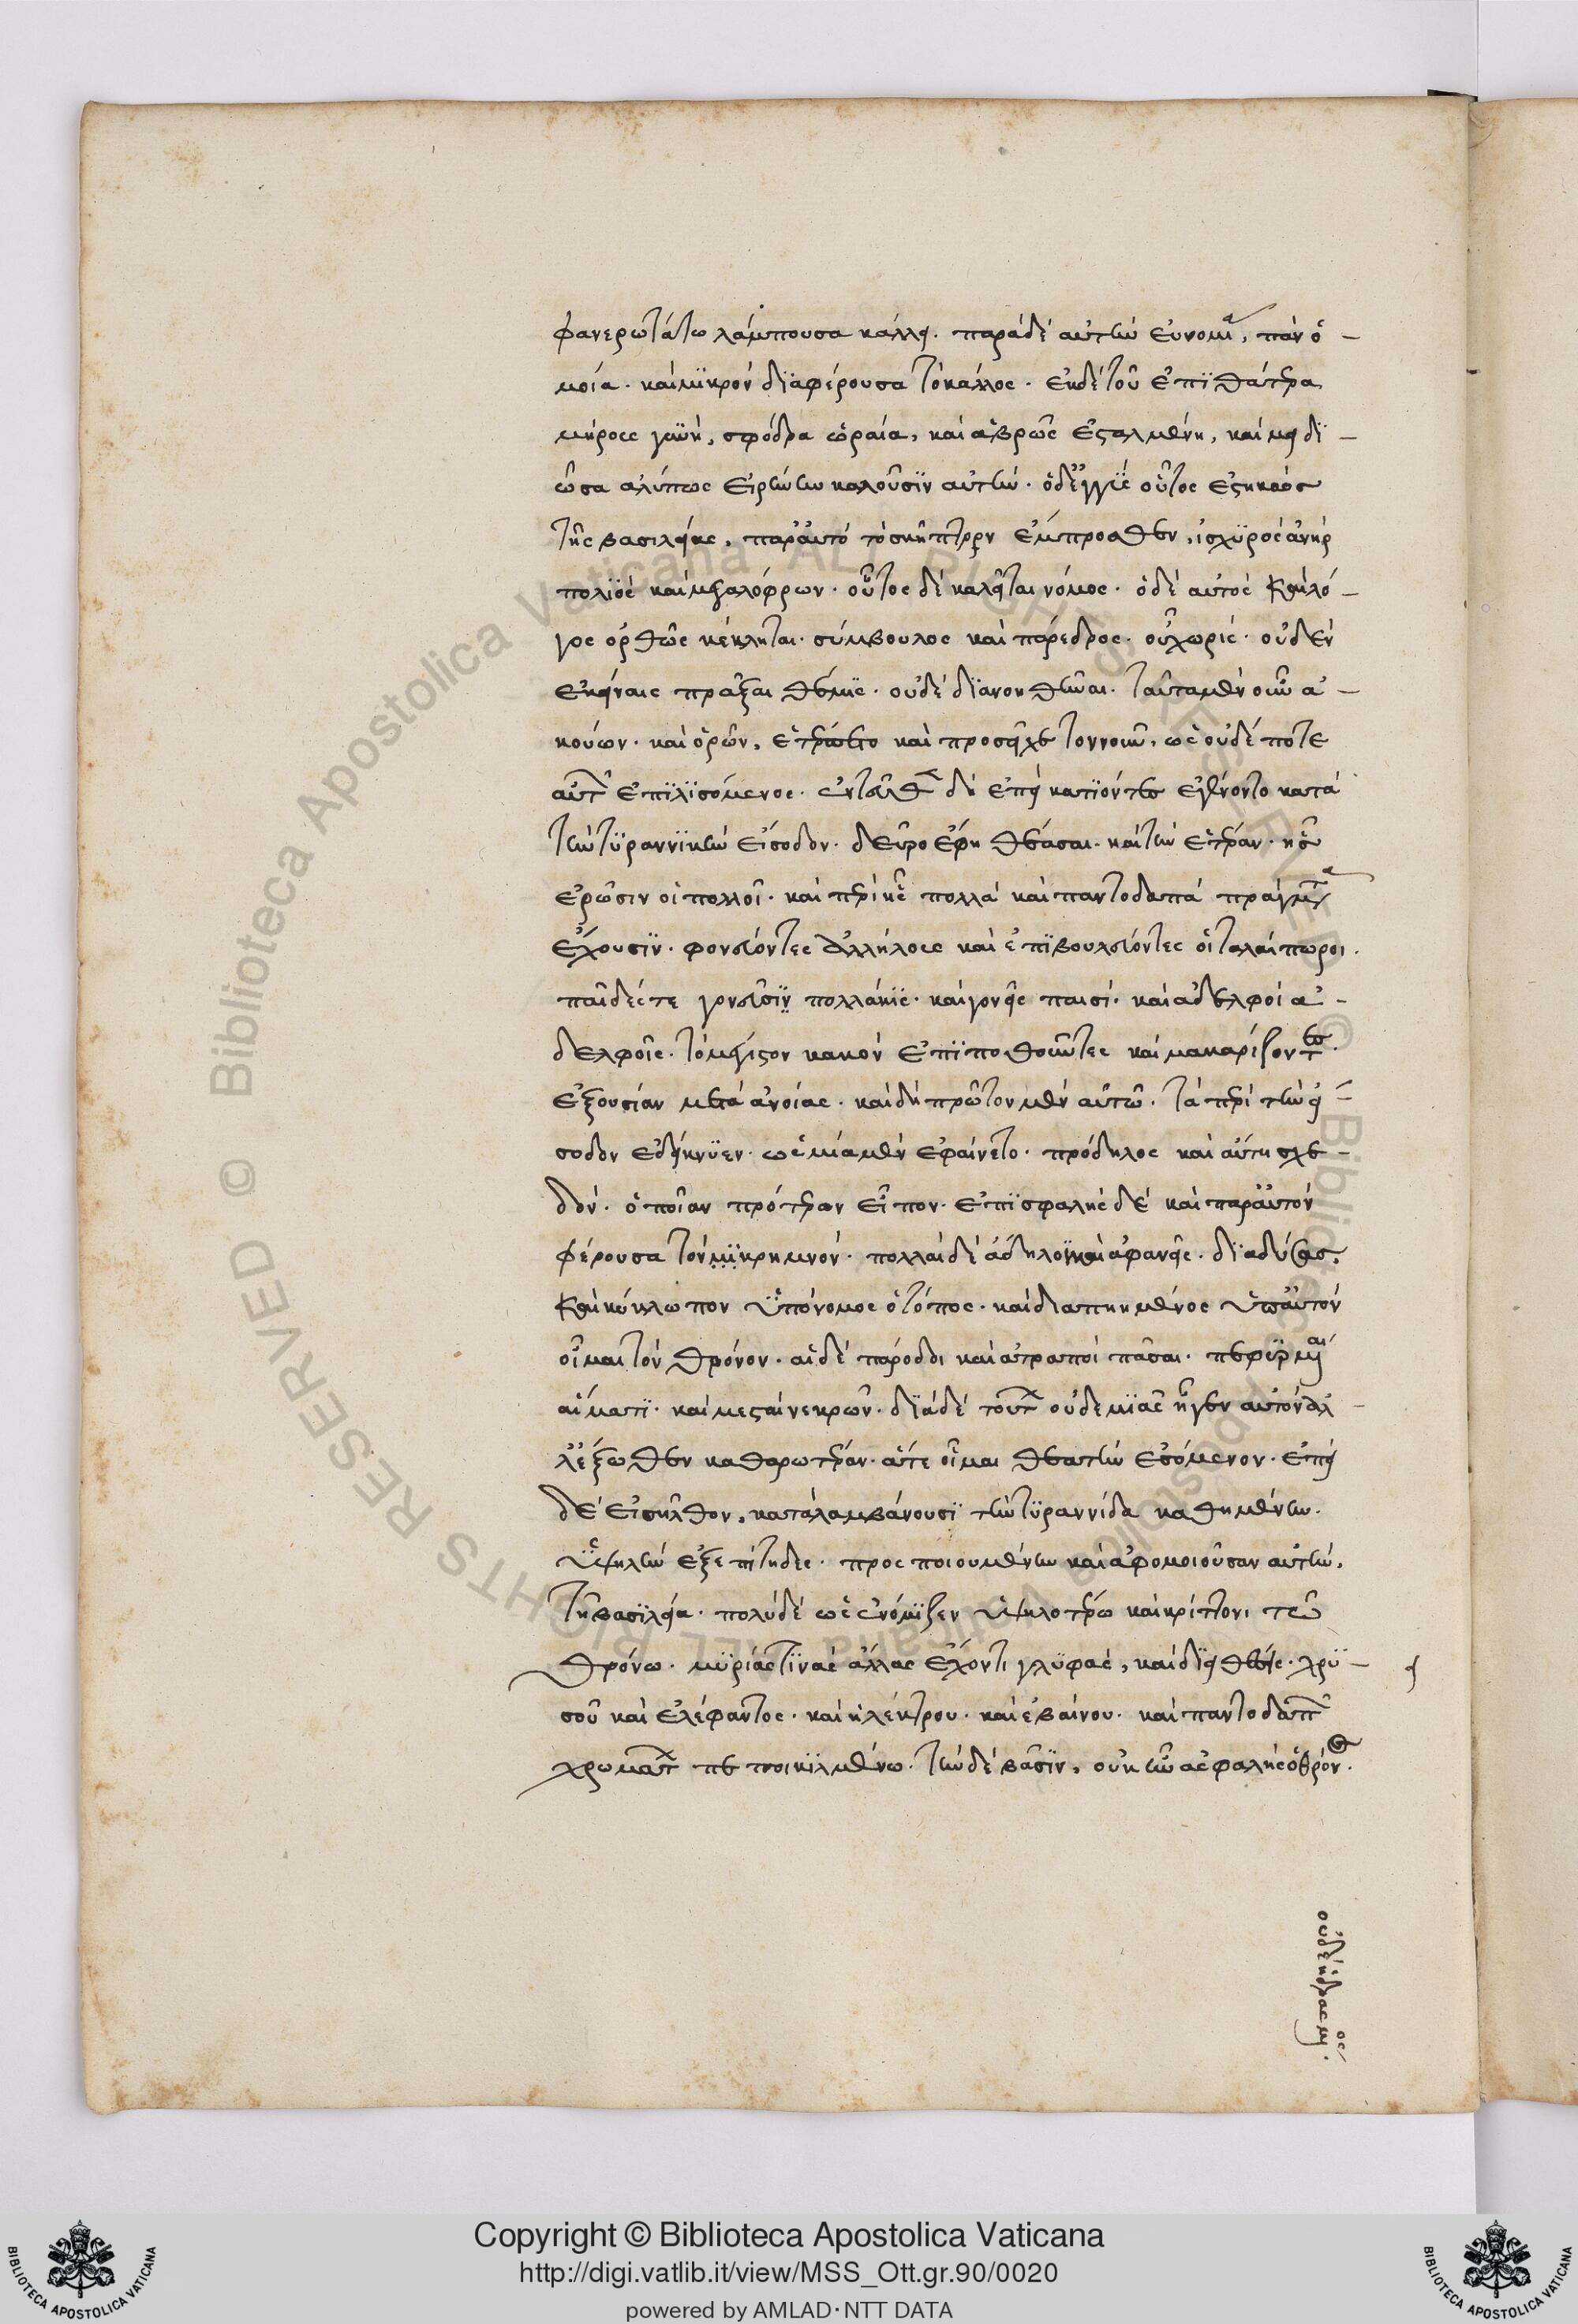 φανερωτάτω λάμπουσα κάλλει. παρὰ δὲ αὐτὴν εὐνομία, πάνυ ὁ-
μοία. καὶ μϊκρὸν δϊαφέρουσα τὸ κάλλος. ἐκ δὲ τοῦ ἐπϊ θάτερα
μέρους γυνὴ, σφόδρα ὡραία, καὶ ἁβρῶς ἐσταλμένη, καὶ μειδϊ-
ῶσα ἀλύπως εἰρήνην καλοῦσϊν αὐτήν. ὁ δ' ἐγγὺς οὗτος ἑστηκὼς
τῆς βασιλείας, παρ' αὐτὸ τὸ σκῆπτρον ἔμπροσθεν, ἰσχϋρὸς ἀνὴρ
πολϊὸς καὶ μεγαλόφρων. οὗτος δὲ καλεῖται νόμος. ὁ δὲ αὐτὸς καὶ λό-
γος ὀρθῶς κέκληται. σύμβουλος καὶ πάρεδρος. οὗ χωρὶς. οὐδὲν
ἐκείναις πρᾶξαι θέμϊς. οὐδὲ δϊανοηθῆναι. ταῦτα μὲν οὖν ἀ-
κούων. καὶ ὁρῶν, ἐτέρπετο καὶ προσεῖχε τὸν νοῦν, ὡς οὐδέποτε
αὐτῶν ἐπϊλϊσόμενος. ἐνταῦθα δὴ ἐπεὶ κατϊόντες ἐγένοντο κατὰ
τὴν τϋραννϊκὴν εἴσοδον. δεῦρο ἔφη θέασαι. καὶ τὴν ἑτέραν. ἧς
ἐρῶσιν οἱ πολλοί. καὶ περὶ ἧς πολλὰ καὶ παντοδαπὰ πράγματα
ἔχουσϊν. φονεύοντες ἀλλήλους καὶ ἐπϊβουλεύοντες οἱ ταλαίπωροι.
παῖδές τε γονεῦσϊν πολλάκϊς. καὶ γονεῖς παισί. καὶ ἀδελφοὶ ἀ-
δελφοῖς. τὸ μέγιστον κακὸν ἐπϊποθοῦντες καὶ μακαρίζοντες.
ἐξουσίαν μετὰ ἀνοίας. καὶ δὴ πρῶτον μὲν αὐτῶ. τὰ περὶ τὴν εἴ-
σοδον ἐδείκνϋεν. ὡς μία μὲν ἐφαίνετο. πρόδηλος καὶ αὕτη σχε-
δὸν. ὁποῖαν πρότερον εἶπον. ἐπϊσφαλὴς δὲ καὶ παρ' αὐτὸν
φέρουσα τὸν μϊκρημνόν. πολλαὶ δὲ ἄδηλοϊ καὶ ἀφανεῖς. δϊαδύσεις,
καὶ κύκλω πον ϋπόνομος ὁ τόπος. καὶ διαπηκμένος ὑπ' αὐτὸν
οἶμαι τὸν θρόνον. αἱ δὲ πάροδοι καὶ ἀτραποὶ πᾶσαι. πεφϋρμέναι
αἵματϊ. καὶ μεσταὶ νεκρῶν. δϊὰ δὲ τούτων οὐδεμϊᾶς ἦγεν αὐτὸν ἀλ-
λ' ἔξωθεν καθαρωτέραν. ἅτε οἶμαι θεατὴν ἐσόμενον. ἐπεὶ
δὲ εἰσῆλθον, καταλαμβάνουσϊ τὴν τϋραννίδα καθημένην.
ϋψηλὴν ἐξεπίτηδες. προσποιουμένην καὶ ἀφομοιοῦσαν αὑτὴν,
τῆ βασϊλεία. πολὺ δὲ ὡς ἐνόμϊζεν ὑψηλοτέρω καὶ κρίττονι τῶ
θρόνω. μϋρίας τϊνὰς ἄλλας ἔχοντι γλϋφὰς, καὶ δϊαθέσεις. χρϋ-
σοῦ καὶ ἐλέφαντος. καὶ ἠλέκτρου. καὶ ἐβαίνου. καὶ παντοδαπῶν
χρωμάτων πεποικϊλμένω. τὴν δὲ βάσϊν, οὐκ ἦν ἀσφαλὴς ὁ θρόνος.
οὐδὲ ἡδρασμένος.